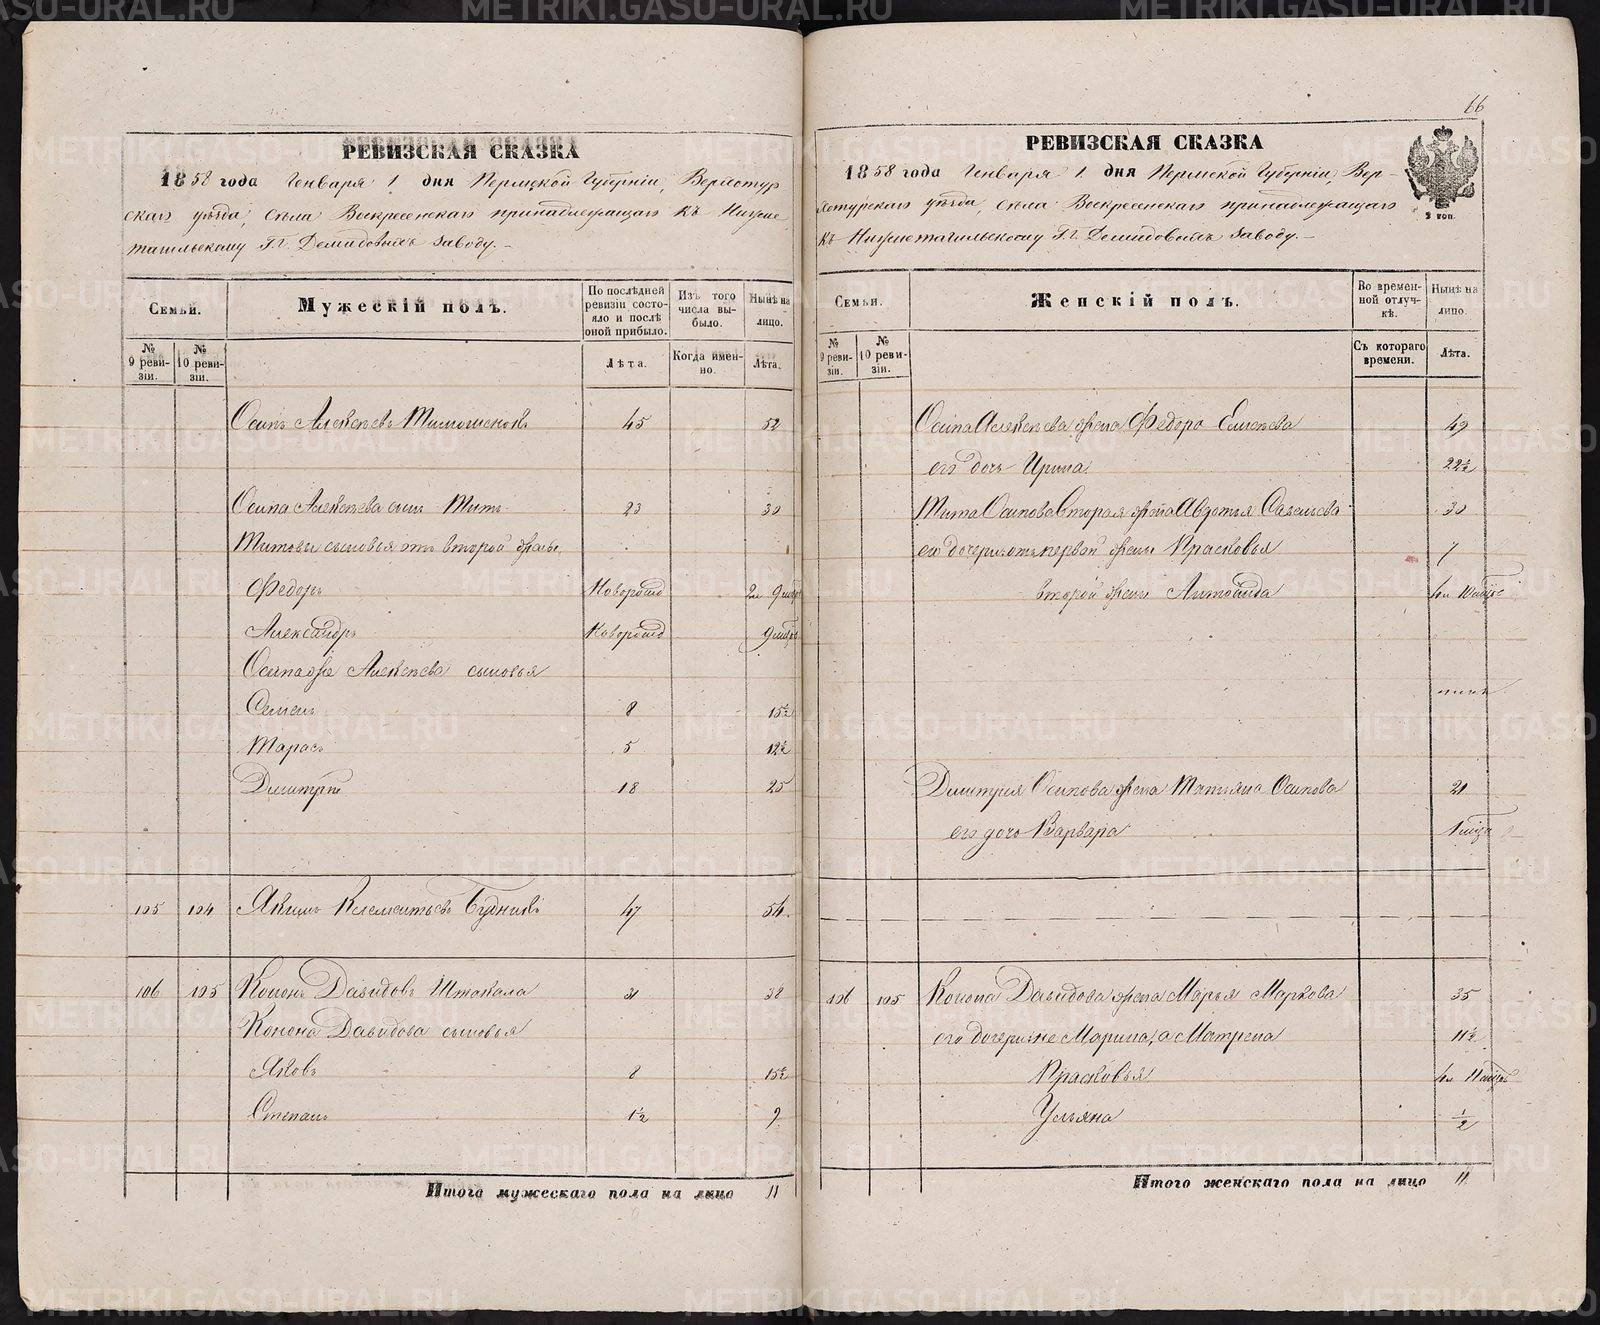 66
РЕВИЗСКАЯ СКАЗКА
1858 года Генваря 1 дня Пермской Губерніи, Верхотур
скаго уѣзда, села Воскресенскаго принадлежащаго къ Нижне
тагильскому Г.г. Демидовыхъ заводу.
Семьи.
Мужескій полъ.
По послѣдней ревизіи состояло и послѣ оной прибыло.
Изъ того числа выбыло.
Нынѣ на лицо.
№ 9 ревизіи.
№ 10 ревизіи.
Лѣта.
Когда именно.
Лѣта.
Осипъ Алексѣевъ 45 52
Осипа Алексѣева сынъ Титъ 23 30
Титовы сыновья отъ второй жены
Федоръ Новорожд 2л 9 мцвъ
Александръ Новорожд 9 мцвъ
Осипа же Алексѣева сыновья
Семенъ 8 15½
Тарасъ 5 12½
Димитрій 18 25
105 104 Якимъ Клементьевъ Будниковъ 47 54
106 105 Кононъ Давидовъ Штакала 31 38
Конона Давидова сыновья
Яковъ 8 15½
Степанъ 1½ 9
Итого мужескаго пола на лицо 11
РЕВИЗСКАЯ СКАЗКА
1858 года Генваря 1 дня Пермской Губерніи, Вер-
хотурскаго уѣзда, села Воскресенскаго принадлежащаго
къ Нижнетагильскому Г.г. Демидовыхъ заводу.
2 коп.
Семьи.
Женскій полъ.
Во временной отлучкѣ.
Нынѣ на лицо.
№ 9 ревизіи.
№ 10 ревизіи.
Съ котораго времени.
Лѣта.
Осипа Алексѣева жена Федора Елисѣева 49
его дочь Ирина 22½
Тита Осипова вторая жена Авдотья Савельева 30
его дочери отъ первой жены Прасковья 7
второй жены 4л 10 мцвъ
Димитрія Осипова жена Татьяна Осипова 21
его дочь Варвара 1 мцъ
106 105 Конона Давидова жена Марья Маркова 35
его дочери не Марина, а Матрена 11½
Прасковья 4л 11 мцвъ
Ульяна ½
Итого женскаго пола на лицо 11
METRIKI.GASO-URAL.RU